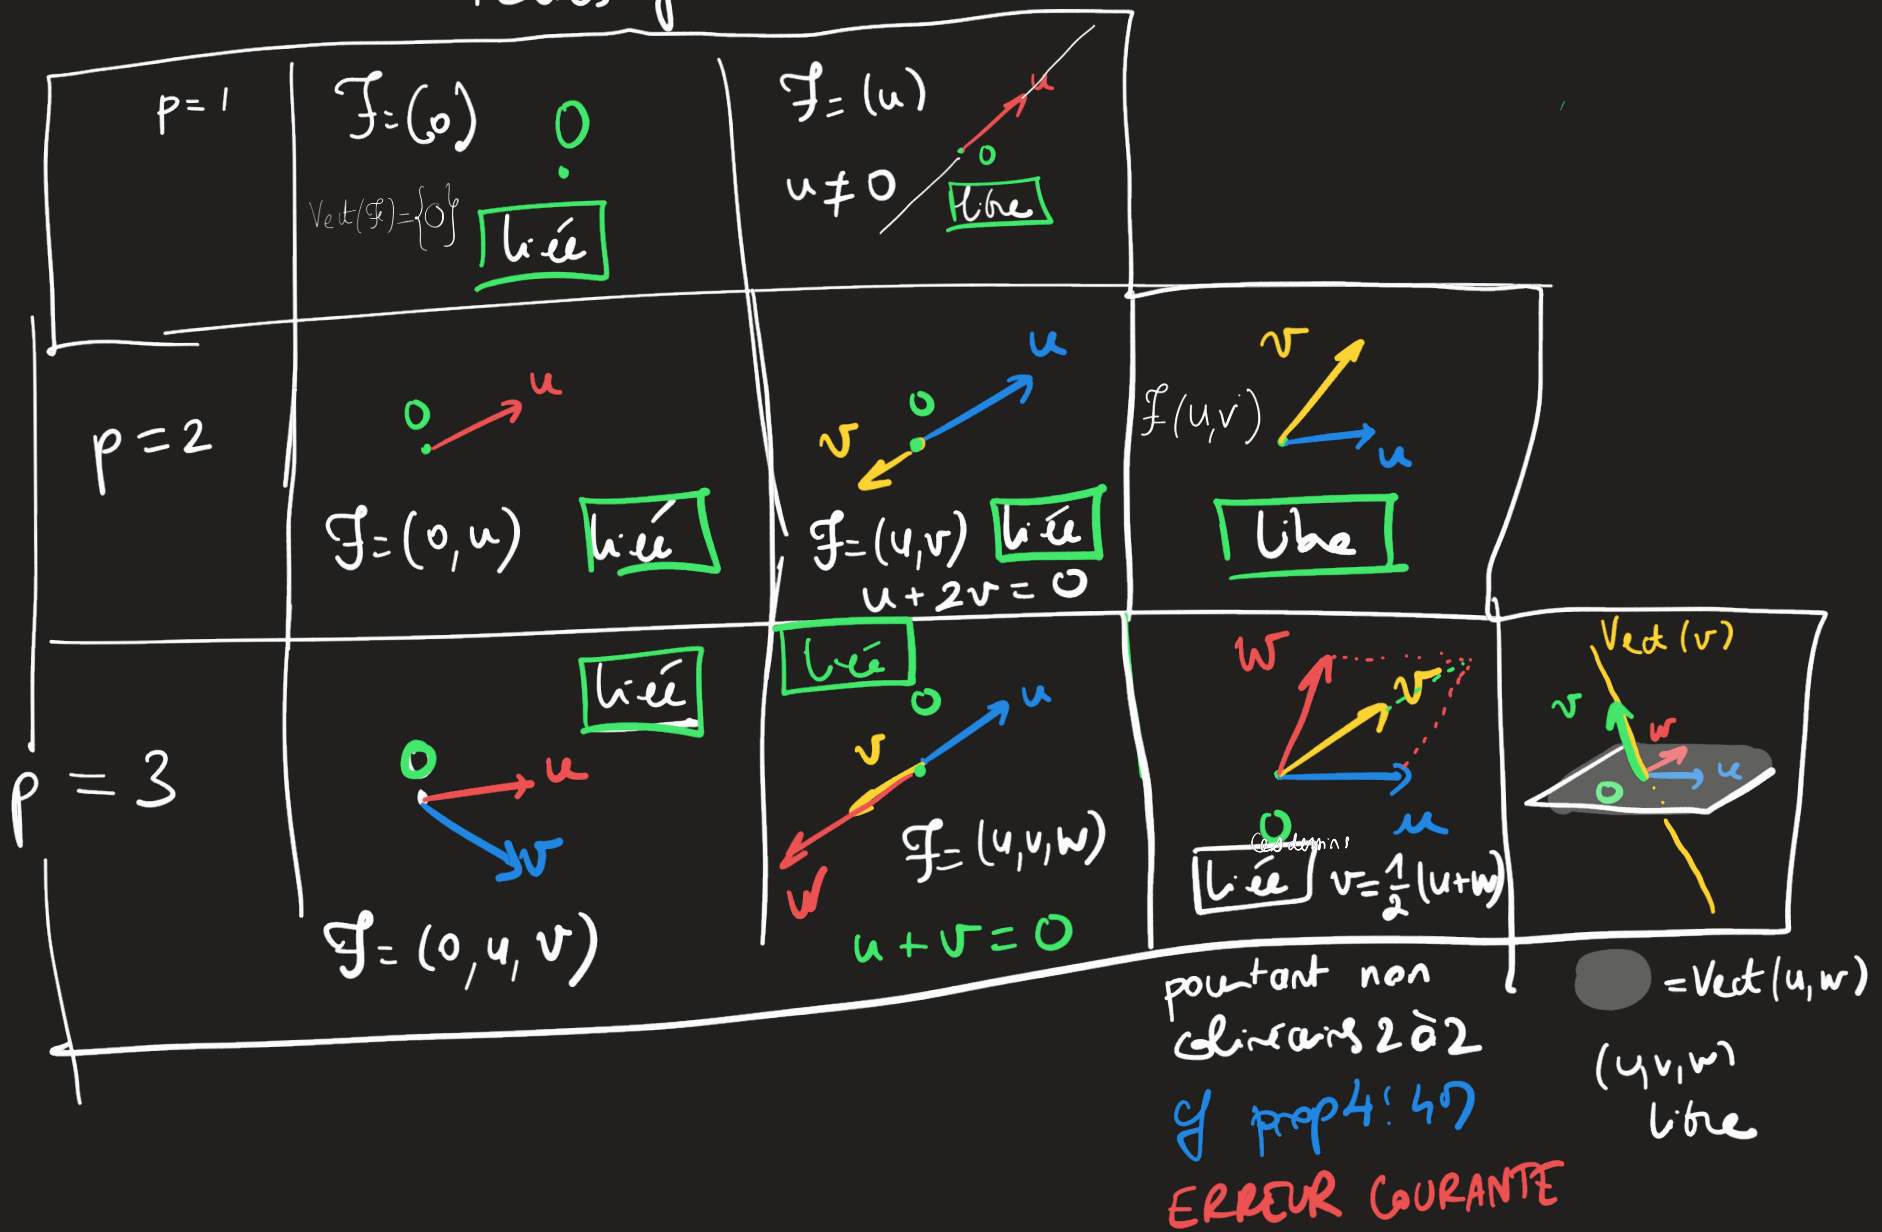 p=1
F=(0)
0
Vect(F)={0}
Liée
F=(u)
u≠0
u
0
Libre
p=2
0
u
F=(0,u)
Liée
u
0
v
F=(u,v)
Liée
u+2v=0
v
F(u,v)
u
Libre
p=3
Liée
0
u
v
F=(0,u,v)
Liée
0
u
v
w
F=(u,v,w)
u+v=0
w
v
u
0
Liée
v=1/2(u+w)
Vect(v)
v
w
u
0
=Vect(u,w)
(u,v,w)
libre
pourtant non
colinéaires 2 à 2
cf prop4
ERREUR COURANTE